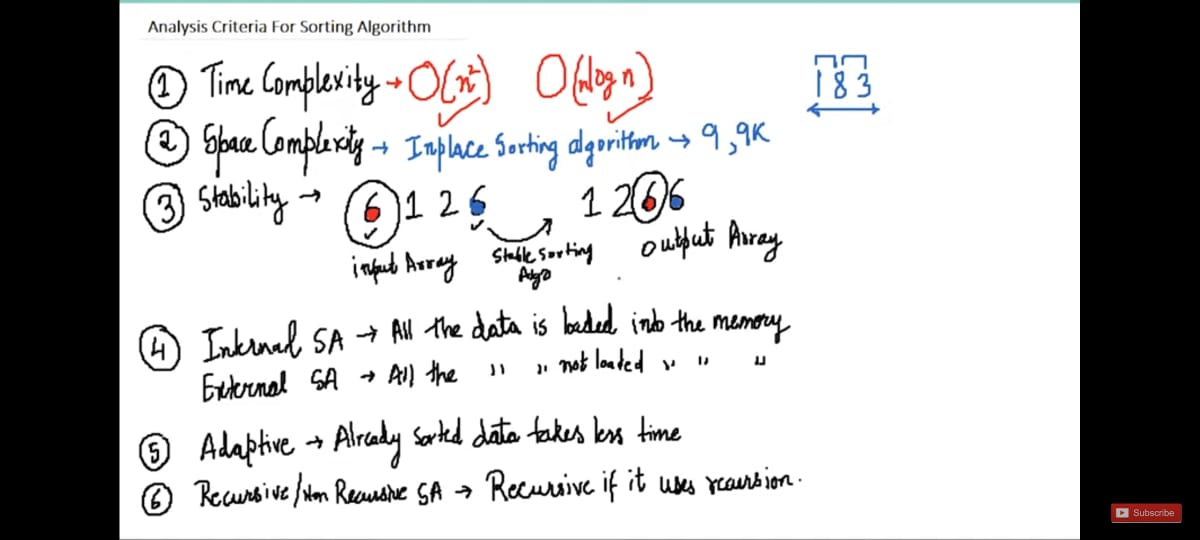 Analysis Criteria For Sorting Algorithm
① Time Complexity → O(n²) O(nlog n)
1 8 3
② Space Complexity → Inplace Sorting algorithm → 9, 9K
③ Stability → 6 1 2 6 1 2 6 6
input Array Stable Sorting Algo output Array
④ Internal SA → All the data is loaded into the memory
External SA → All the " " not loaded " " "
⑤ Adaptive → Already sorted data takes less time
⑥ Recursive/Non Recursive SA → Recursive if it uses recursion.
Subscribe